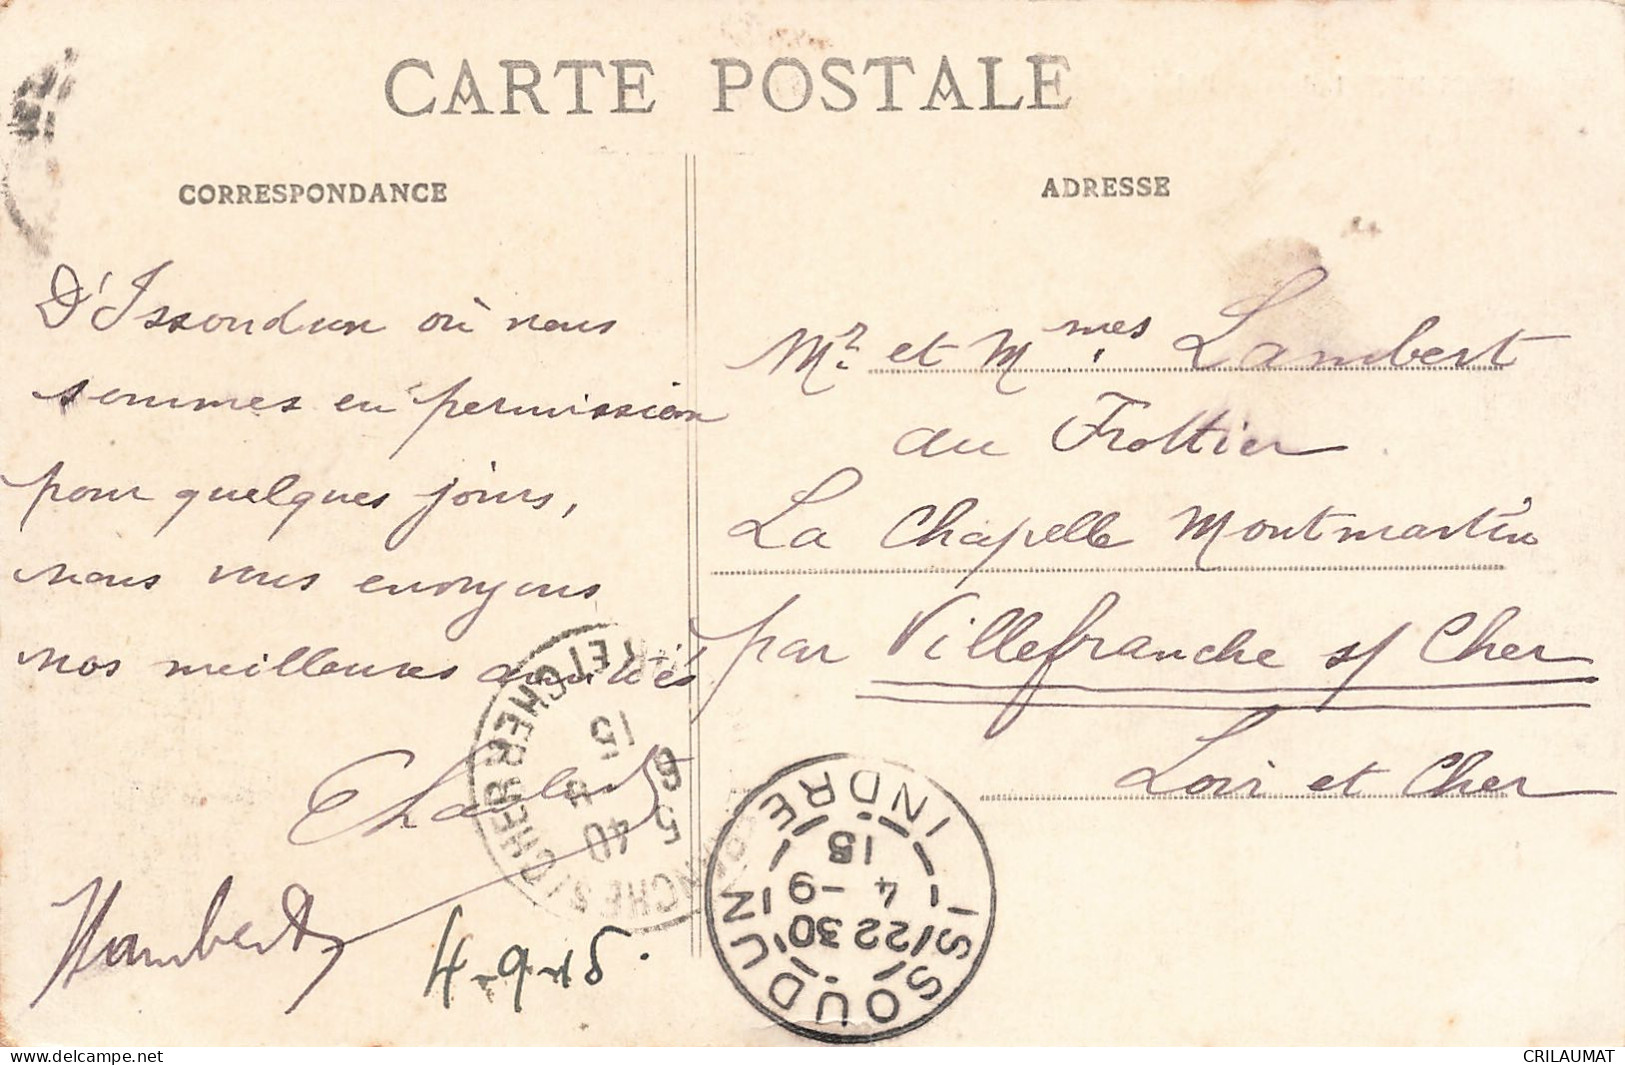 CARTE POSTALE
CORRESPONDANCE
ADRESSE
D'Issoudun où nous
sommes en permission
pour quelques jours,
nous vous envoyons
nos meilleures amitiés
Hambert
4-9-15.
Mr. et Mmes Lambert
au Frottier
La Chapelle Montmartin
par Villefranche s/ Cher
Loir et Cher
ISSOUDUN
INDRE
22 30
4 - 9
15
LOIR ET CHER
15
6 5
40
www.delcampe.net
CRILAUMAT